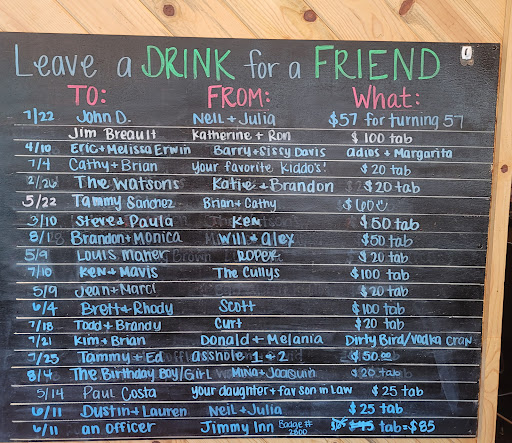 Leave a DRINK for a FRIEND
TO: FROM: What:
7/22 John D. Neil + Julia $57 for turning 57
Jim Breault Katherine + Ron $100 tab
4/10 Eric+Melissa Erwin Barry+Sissy Davis adios + Margarita
7/4 Cathy+Brian your favorite kiddo's! $20 tab
2/26 The Watsons Katie + Brandon $20 tab
5/22 Tammy Sanchez Brian+Cathy
3/10 Steve+Paula Ken $50 tab
8/1 Brandon+Monica Will + alex $50 tab
5/9 Louis Maher ROPER $20 tab
7/10 Ken+Mavis The Cullys $100 tab
5/9 Jean+Marci $20 tab
6/4 Brett+Rhody Scott $100 tab
7/18 Todd+Brandy Curt $20 tab
7/21 Kim+Brian Donald + Melania Dirty Bird/Vodka Cran
5/25 Tammy+Ed asshole 1+2 $50.00
8/4 The Birthday Boy/Girl Mina+Joaquin $20 tab
5/14 Paul Costa your daughter + fav son in Law $25 tab
6/11 Dustin+Lauren Neil + Julia $25 tab
6/11 an officer Jimmy Inn Badge # 2800 $45 tab=$85